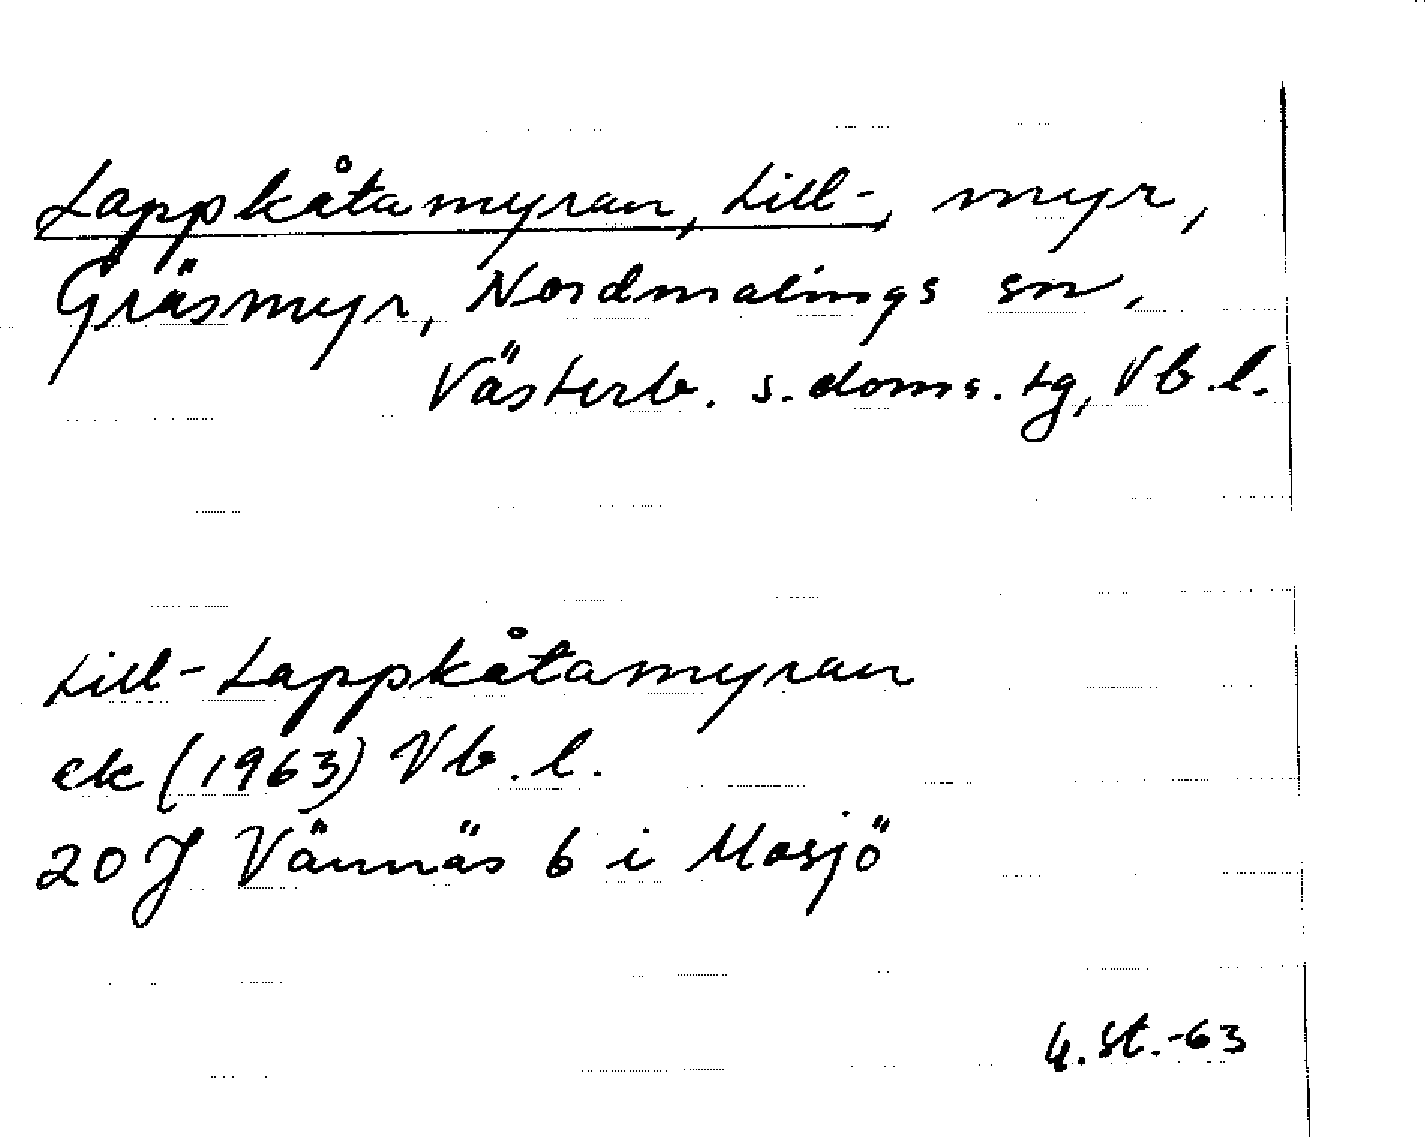 Lappkåtamyran, Lill-, myr,
Gräsmyr, Nordmalings sn,
Västerb. s. doms. tg, Vb. l.
Lill-Lappkåtamyran
ek (1963) Vb. l.
20 J Vännäs 6 i Mosjö
G. St. -63